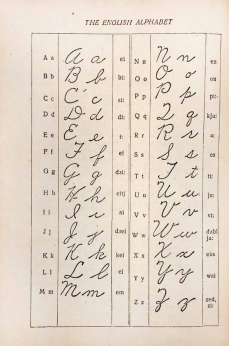 THE ENGLISH ALPHABET
A a A a ei
B b B b bi:
C c C c si:
D d D d di:
E e E e i:
F f F f ef
G g G g dʒi:
H h H h eitʃ
I i I i ai
J j J j dʒei
K k K k kei
L l L l el
M m M m em
N n N n en
O o O o ou
P p P p pi:
Q q Q q kju:
R r R r a:
S s S s es
T t T t ti:
U u U u ju:
V v V v vi:
W w W w dʌbl
ju:
X x X x eks
Y y Y y wai
Z z Z z zed,
zi: